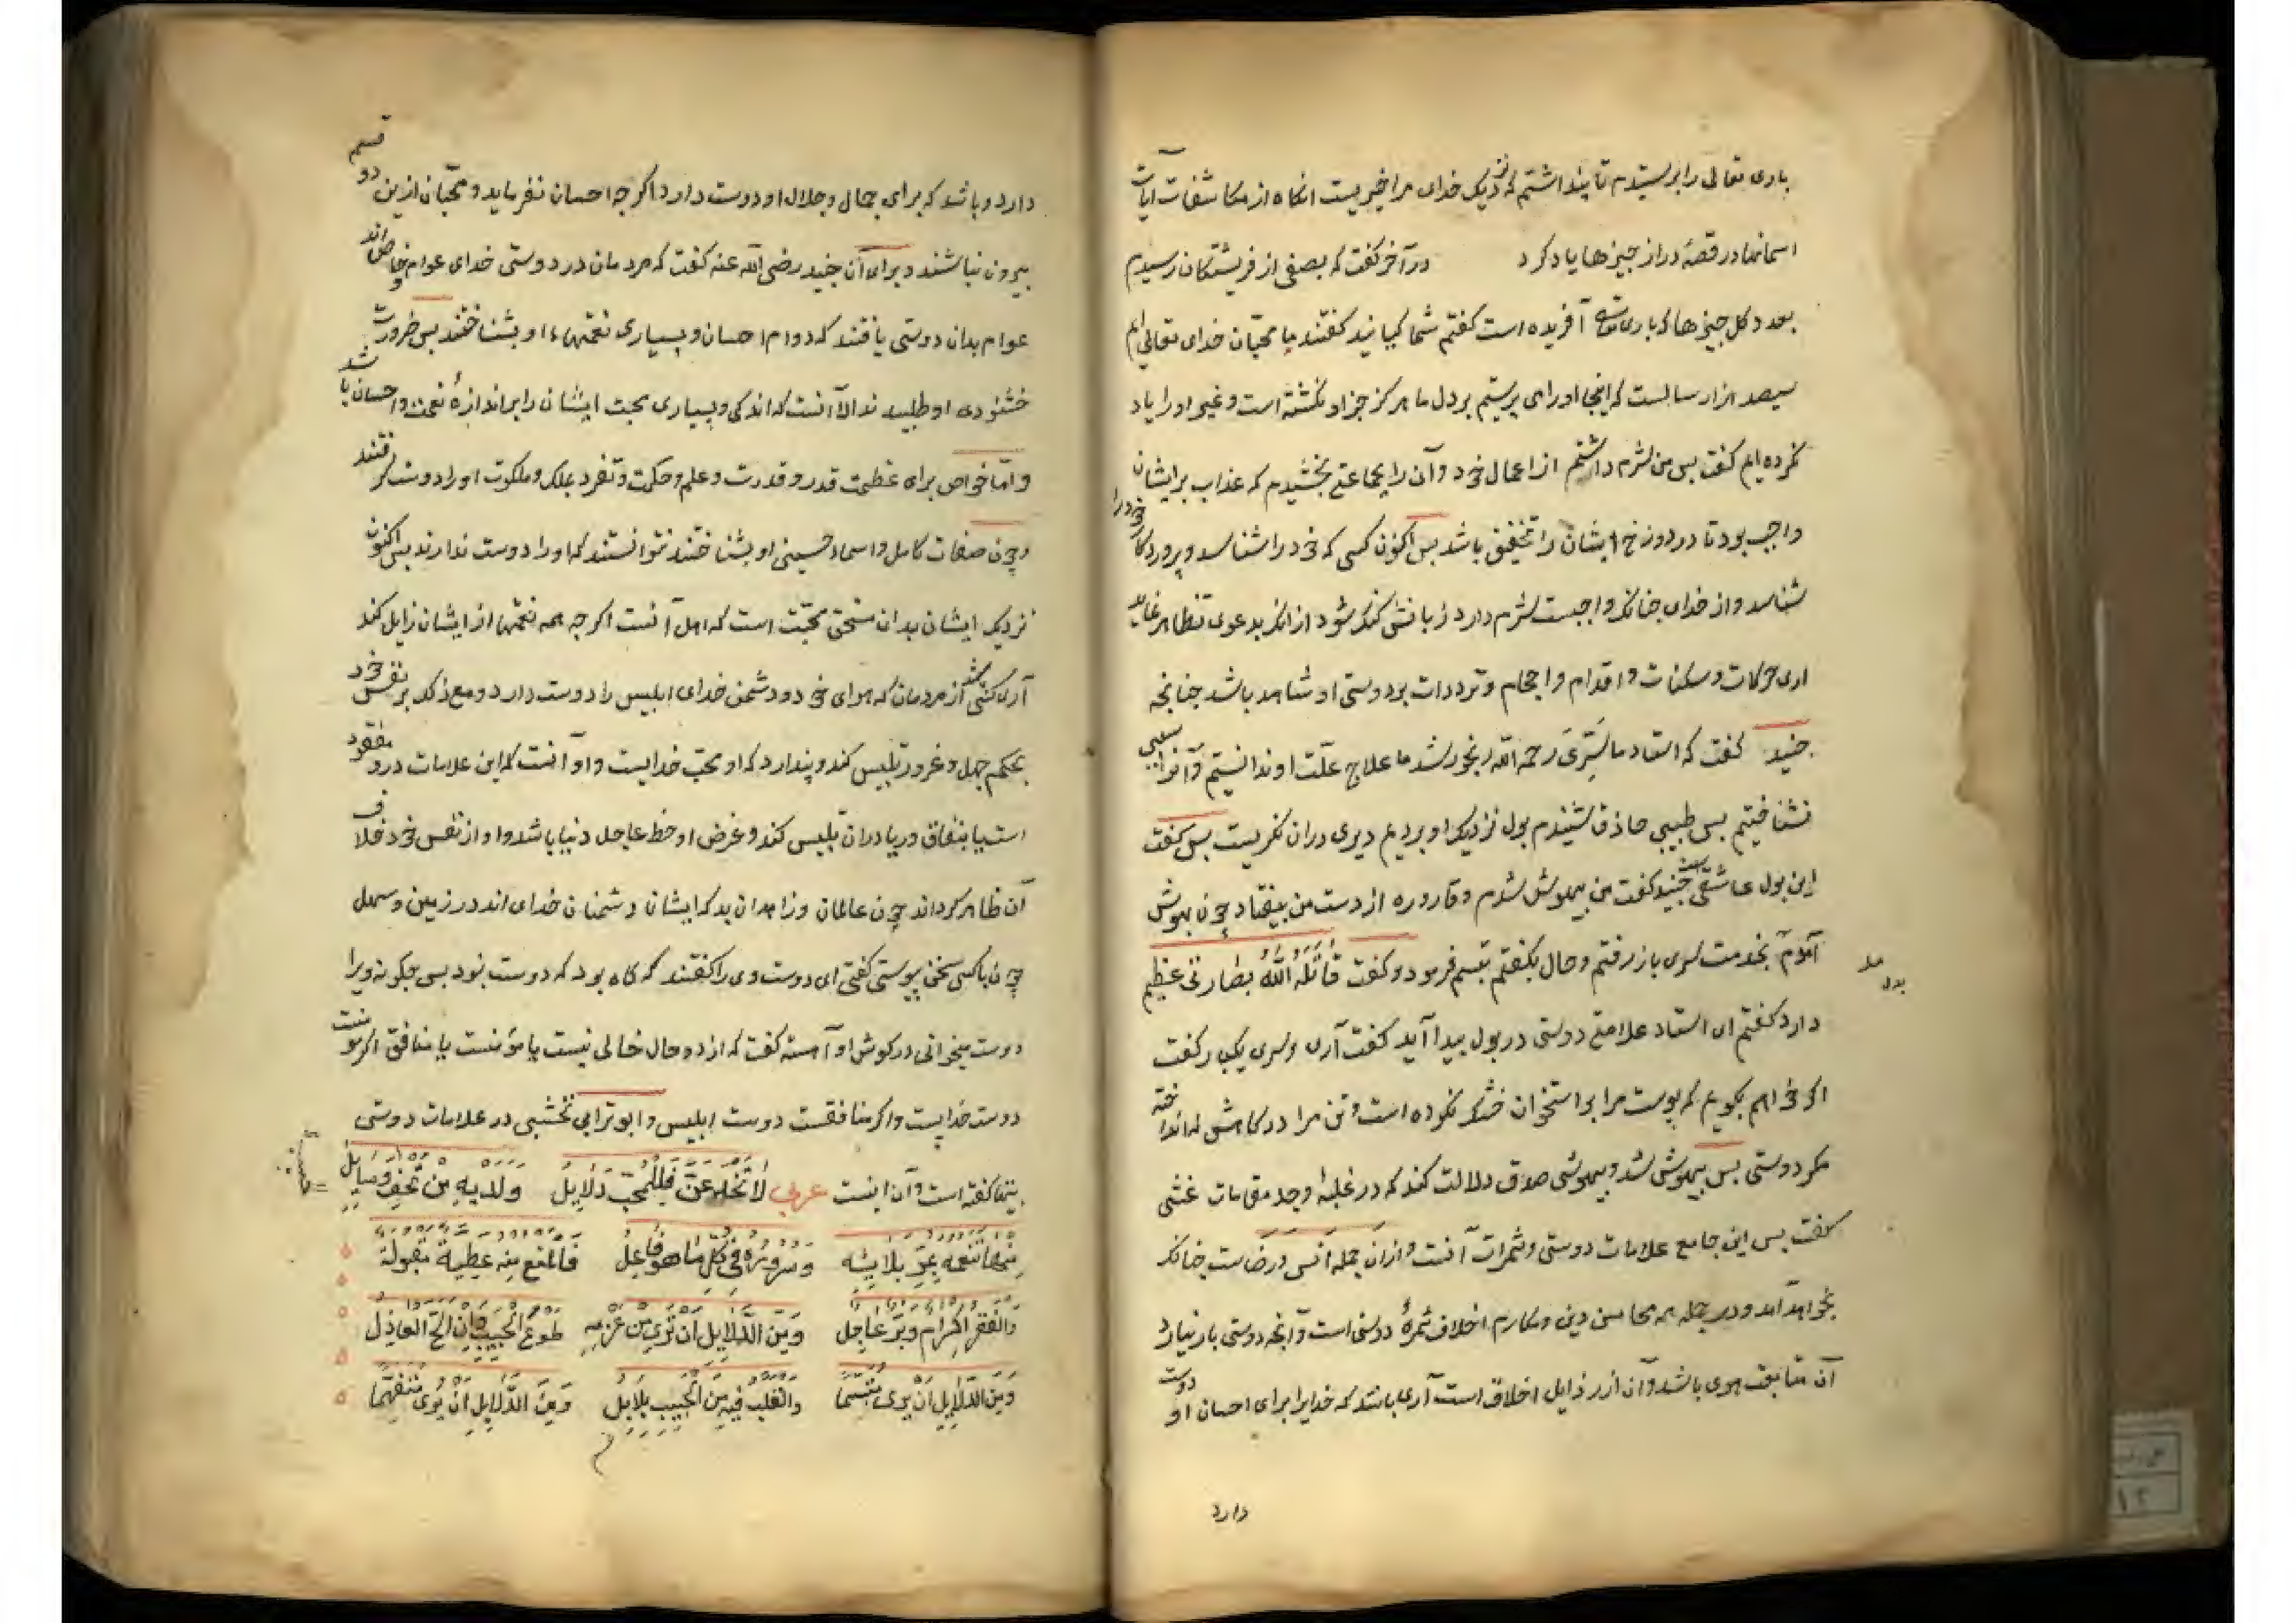 باری تعالی را برستیدم تا پنداشتم که نزدیک خدای مرا خیریست انکاه از مکاشفات آیات
اسمانها در قصهٔ دراز جیزها یاد کرد در آخر کفت که بصفی از فریشتکان رسیدم
بعدد کل جیزها که باری تعالی آفریده است کفتم شما کیانید کفتند ما محبّان خدای تعالی ایم
سیصد هزار سالست که اینجا او را می پرستیم بر دل ما هرکز جز او نکشته است و غیر او را یاد
نکرده ایم کفت بس من شرم داشتم از اعمال خود و آن را بجماعتی بخشیدم که عذاب بر ایشان
واجب بود تا در دوزخ ایشان را تخفیف باشد بس اکنون کسی که خود را شناسد و پروردکار خود را
شناسد و از خدای جنانکه واجبست شرم دارد زبانش کنک شود از انکه بدعوی تظاهر نماید
اری حرکات و سکنات و اقدام و احجام و ترددات بر دوستی او شاهد باشد جنانجه
جنید کفت که استاد ما سَرِیّ رحمه الله رنجور شد ما علاج علّت او ندانستیم و آنرا سببی
نشناختیم بس طبیبی حاذق شنیدم بول نزدیک او بردیم دیری دران نکریست بس کفت
این بول عاشقی است جنید کفت من بیهوش شدم و قاروره از دست من بیفتاد چون بهوش
آمدم بخدمت سری باز رفتم و حال بکفتم تبسم فرمود و کفت قَاتَلَهُ اللهُ بصارتی عظیم
دارد کفتم ای استاد علامتِ دوستی در بول بیدا آید کفت آری و سری یکبار کفت
اکر خواهم بکویم که پوست مرا بر استخوان خشک نکرده است و تن مرا در کاهش نه انداخته
مکر دوستی بس بیهوش شد و بیهوشی صدق دلالت کند که در غلبهٔ وجد مقامات غشی
کفت بس این جامع علامات دوستی و ثمرات آنست و ازان جمله انس و رضاست جنانکه
بخواهد آمد و در جمله همه محاسن دین و مکارم اخلاق ثمرهٔ دوستی است و آنجه دوستی بار نیارد
آن متابعت هوی باشد و آن از رذایل اخلاق است آری باشد که خدایرا برای احسان او دوست
دارد
دارد و باشد که برای جمال و جلال او دوست دارد اکرجه احسان نفرماید و محبّان ازین دو قسم
بیرون نباشند و برای آن جنید رضی الله عنه کفت که مردمان در دوستی خدای عوام و خاص اند
عوام بدان دوستی یافتند که دوام احسان و بسیاری نعمتهاء او بشناختند بس ضرورت
خشنودی او طلبیدند الا آنست که اندکی و بسیاری محبت ایشان را بر اندازهٔ نعمت و احسان باشد
و امّا خواص برای عظمت قدر و قدرت و علم و حکمت و تفرد بملک و ملکوت او را دوست کرفتند
و چون صفات کامل و اسماء حسنی او بشناختند نتوانستند که او را دوست ندارند بس اکنون
نزدیک ایشان بدان مستحق محبّت است که اهل آنست اکرجه همه نعمتها از ایشان زایل کند
آری کسی باشد از مردمان که هوای خود و دشمن خدای ابلیس را دوست دارد و مع ذلک بر نفس خود
بحکم جهل و غرور تلبیس کند و پندارد که او محب خدایست و او آنست که این علامات درو مفقود
است یا بنفاق و ریا دران تلبیس کند و غرض او حظ عاجل دنیا باشد و او از نفس خود خلاف
آن ظاهر کرداند چون عالمان و زاهدان بد که ایشان دشمنان خدای اند در زمین و سهل
چون با کسی سخن پیوستی کفتی ای دوست وی را کفتند که کاه بود که دوست نبود بس جکونه ویرا
دوست میخوانی در کوش او آهسته کفت که از دو حال خالی نیست یا مؤمنست یا منافق اکر مومنست
دوست خدایست و اکر منافقست دوست ابلیس و ابوتراب نخشبی در علامات دوستی
بیتها کفته است و آن اینست عربی لَا تُخْدَعَنَّ فَلِلْمُحِبِّ دَلَایِلُ وَلَدَیهِ مِنْ تُحَفِ وَسَایِلُ
مِنْهَا تَنَعُّمُه بِمُرِّ بَلَائِهِ وَسُرُورُهُ فِی کُلِّ مَا هُوَ فَاعِلُ فَالْمَنْعُ مِنْه عَطِیَّةٌ مَقْبُولَةٌ
وَالْفَقْرُ اِکْرَام وَبِرٌّ عَاجِلُ وَمِنَ الدَّلَایِلِ اَنْ تَرَی مِنْ عَزْمِهِ طَوْعَ الْحَبِیبِ وَاِنْ اَلَحَّ الْعَاذِلُ
وَمِنَ الدَّلَایِلِ اَنْ یُرَی مُتَبَسِّمًا وَالْقَلْبُ فِیهِ مِنَ الْحَبِیبِ بَلَابِلُ وَمِنَ الدَّلَایِلِ اَنْ یُرَی مُتَفَهِّمًا